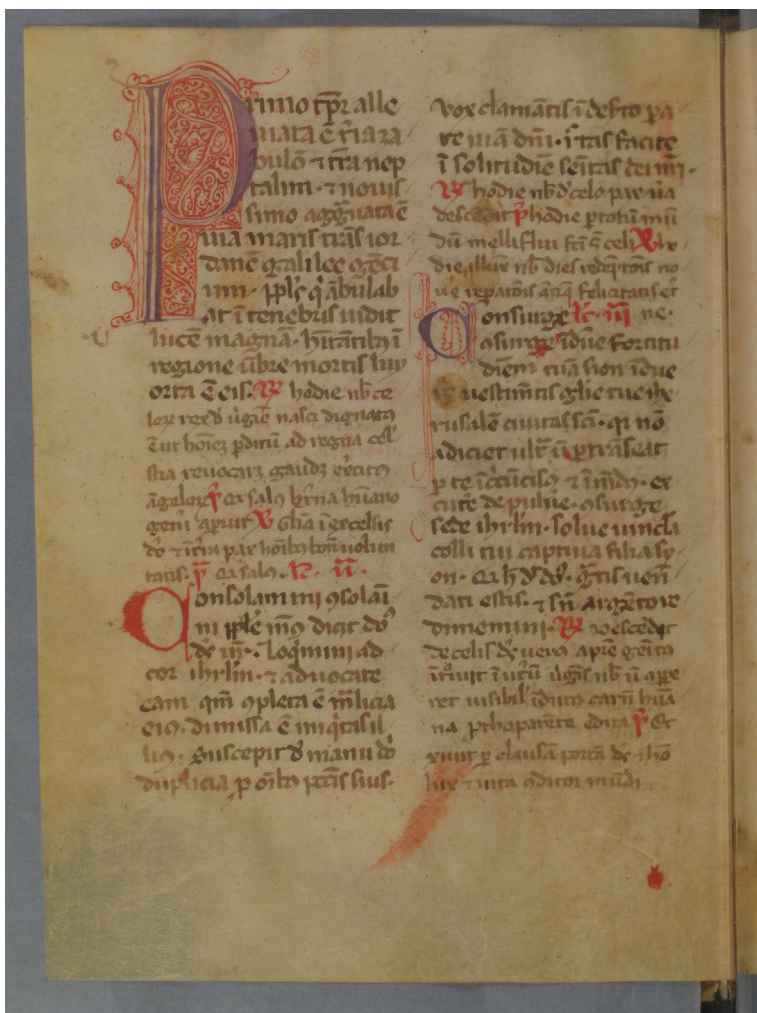 Primo tp̄r alle
uiata ē t̄ra za
bulō ⁊ t̄ra nep
talim · ⁊ nouis
simo aggͣuata ē
uia maris trās ior
danē galilee gēti
um · pp̄ls q̇ ābulab
at ī tenebris uidit
lucē magnā · hītātibꝯ ī
regione ūbre mortis lux
orta ē eis. ℟ hodie nb̄ ce
loꝝ rex d̄ ūgīe nasci dignatꝯ
ē ut hoīez ꝑditū ad regna cel̄
stia reuocaret gaudꝫ exc̄itꝯ
āgeloꝝ p̄ q̇a salꝯ et̄na hūano
geni apꝑuit ℣ Gl̄ia ī excelsis
dō ⁊ ī t̄ra pax hoībꝯ bone uolun
tatis. p̄ q̇a salꝯ. lc̄. ii.
Consolamini ꝯsolaī
ni pp̄le mꝯ dicit dꝰ
dr̄ ur̄ · loq̇mini ad
cor ihrlm̄ · ⁊ aduocate
eam qm̄ ꝯpleta ē ml̄icia
eiꝯ · dimissa ē iniq̇tas il
liꝯ · suscepit d̄ manu dō
duplicia ꝓ oībꝯ pctīs suis ·
vox clamātis ī deẜto pa
re uiā dn̄i · r̄tas facite
ī solitudīe semitas dei nr̄i ·
℟ hodie nb̄ d̄ celo pax ūa
descēdit p̄ hodie ꝑ totū mū
dū melliflui fc̄i s̄ celi ℣ ho
die illuxit nb̄ dies redēptōis no
ue reparatōis ātiq̇ felicitatis et̄
Consurge lc̄ · iii ne ·
ꝯsurge īdue fortitu
diēm tuā sion īdue
re uestimētis gl̄ie tue ihe
rusalē ciuitas sc̄i · qr nō
adiciet ult̄ ut ꝑtrāseat
ꝑ te īc̄cūcisꝯ ⁊ īmūdꝯ · ex
cutē de puluē · ꝯsurge
sede ihrlm̄ · solue uincla
colli tui captiua filia sy
on · q̇a h̄ d̄ dꝰ · gͣtis uenū
dati estis · ⁊ sn̄ argēto re
dimemini · ℟ Descēdit
de celis dꝰ uerꝯ a pr̄e geītꝯ
ītͦiuit ī ut̄ū ūgīs nb̄ ut appe
ret uisibil̄ īdutꝯ carn̄ hūa
na ꝓthoparēte edita p̄ Et
exiuit ꝑ clausā portā dꝰ ⁊ hō
lux ⁊ uita ꝯditor mūdi